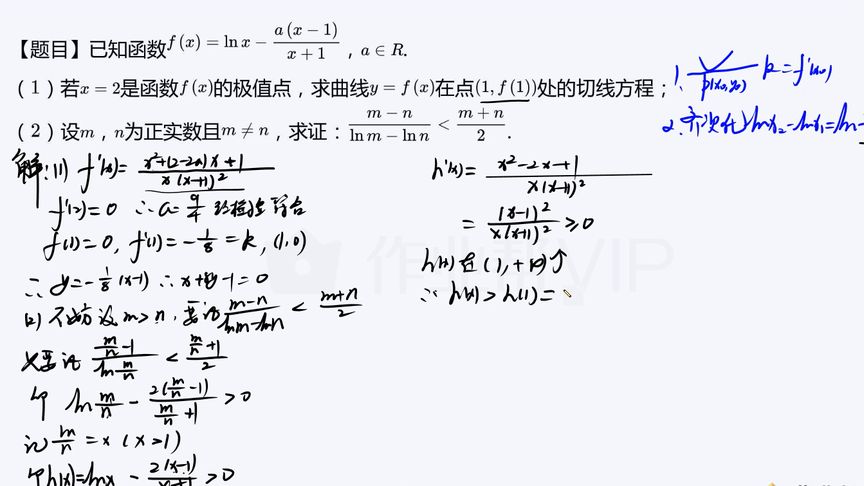 【题目】已知函数f(x)=ln x-a(x-1)/(x+1)，a∈R.
(1)若x=2是函数f(x)的极值点，求曲线y=f(x)在点(1,f(1))处的切线方程；
(2)设m，n为正实数且m≠n，求证：(m-n)/(ln m-ln n)<(m+n)/2.
1. P(x₀,y₀) k=f'(x₀)
2. 齐次化 lnx₂-lnx₁=ln
解:(1) f'(x)=(x²+(2-2a)x+1)/(x(x+1)²)
f'(2)=0 ∴a=9/4 经检验符合
f(1)=0, f'(1)=-1/8=k, (1,0)
∴y=-1/8(x-1) ∴x+8y-1=0
(2) 不妨设m>n, 要证(m-n)/(lnm-lnn)<(m+n)/2
只要证 (m/n-1)/(ln m/n)<(m/n+1)/2
即 ln m/n-2(m/n-1)/(m/n+1)>0
记 m/n=x(x>1)
即h(x)=lnx-2(x-1)/(x+1)>0
h'(x)=(x²-2x+1)/(x(x+1)²)
=(x-1)²/(x(x+1)²)≥0
h(x)在(1,+∞)↑
∴h(x)>h(1)=
作业帮VIP